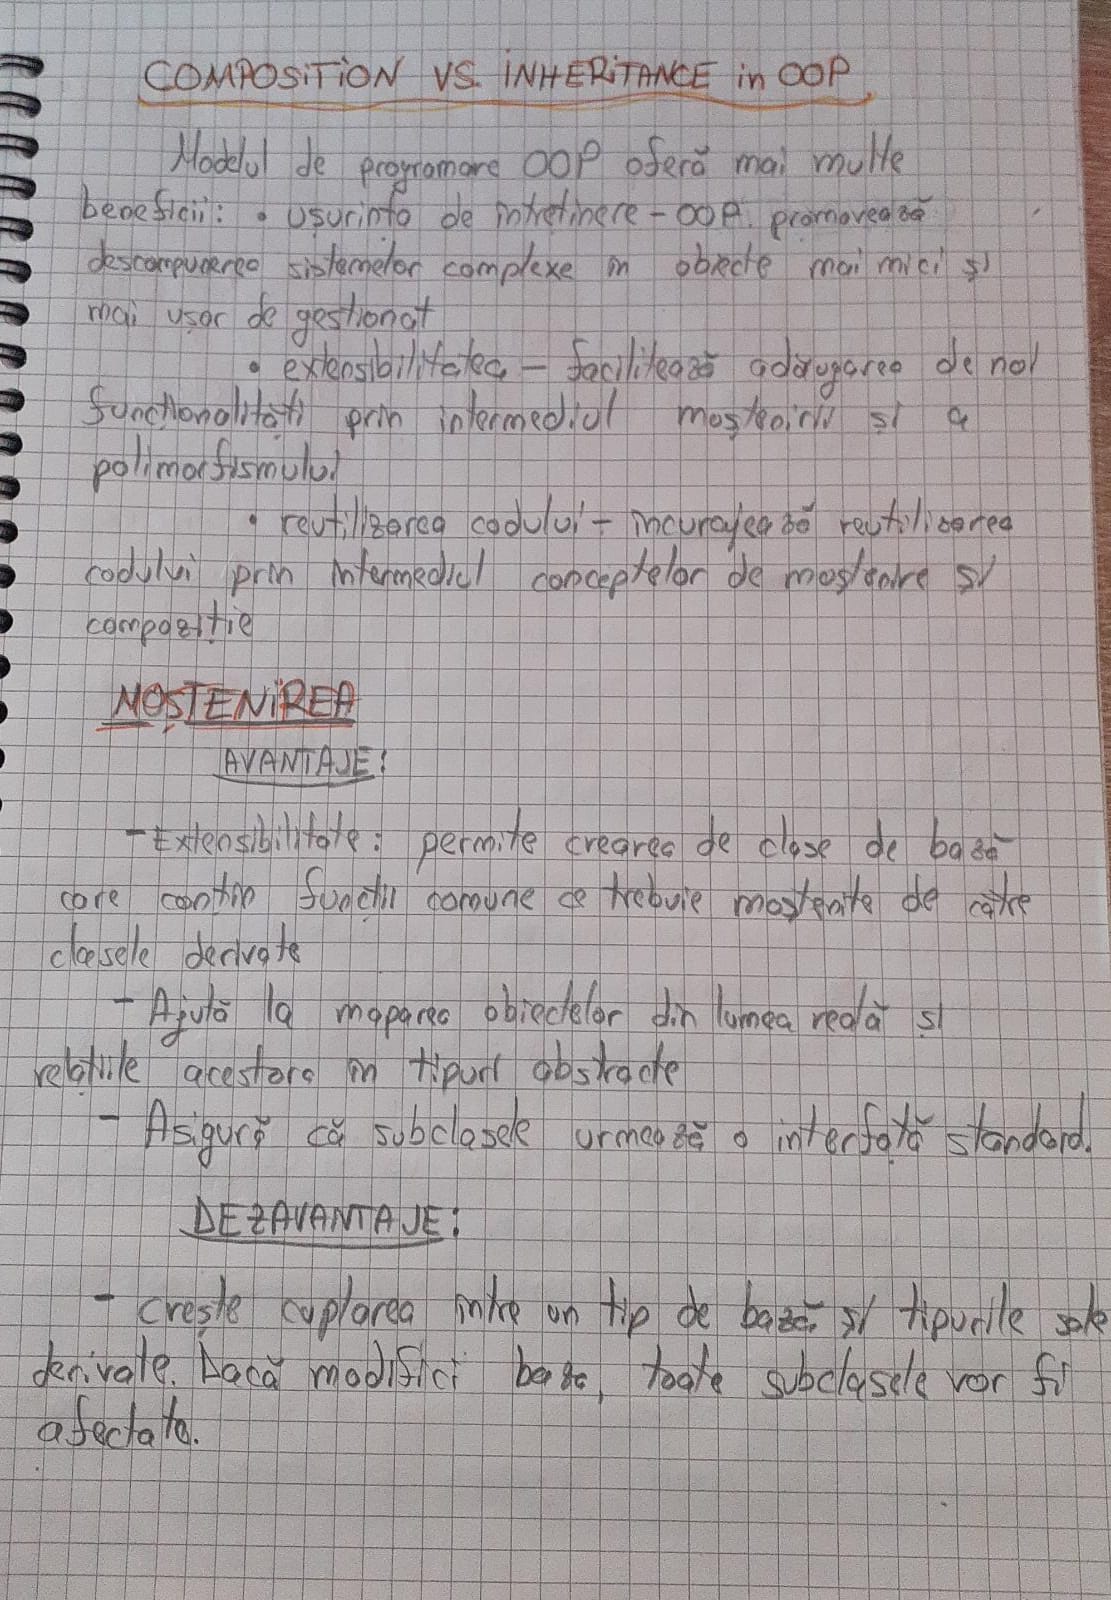 COMPOSITION VS. INHERITANCE in OOP
Modelul de programare OOP oferă mai multe
beneficii: • usurinta de intretinere - OOP promovează
descompunerea sistemelor complexe in obiecte mai mici și
mai ușor de gestionat
• extensibilitatea - facilitează adăugarea de noi
funcționalități prin intermediul mostenirii și a
polimorfismului
• reutilizarea codului - incurajează reutilizarea
codului prin intermediul conceptelor de mostenire și
compozitie
MOȘTENIREA
AVANTAJE:
- Extensibilitate: permite crearea de clase de bază
care contin functii comune ce trebuie mostenite de către
clasele derivate
- Ajută la maparea obiectelor din lumea reală și
relațiile acestora in tipuri abstracte
- Asigură că subclasele urmează o interfață standard.
DEZAVANTAJE:
- crește cuplarea intre un tip de bază și tipurile sale
derivate. Dacă modifici baza, toate subclasele vor fi
afectate.